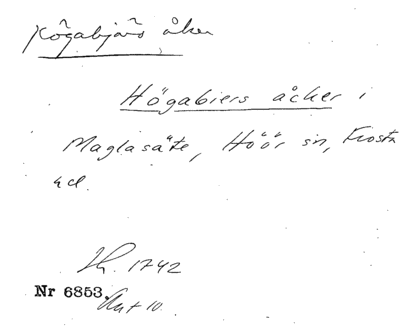 Högabjärs åker
Högabiers åcker i
Maglasäte, Höör sn, Frosta
hd.
Lh. 1742
Nr 6853. Akt 10